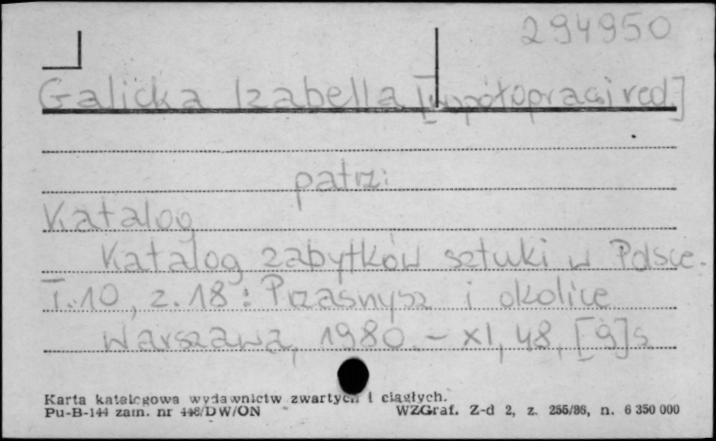 294950
Galicka Izabella [współoprac i red]
patrz:
Katalog
Katalog zabytków sztuki w Polsce.
T. 10, z. 18: Przasnysz i okolice
Warszawa, 1980. - XI, 48, [9] s
Karta katalogowa wydawnictw zwartych i ciągłych.
Pu-B-144 zam. nr 446/DW/ON WZGraf. Z-d 2, z. 255/86, n. 6 350 000